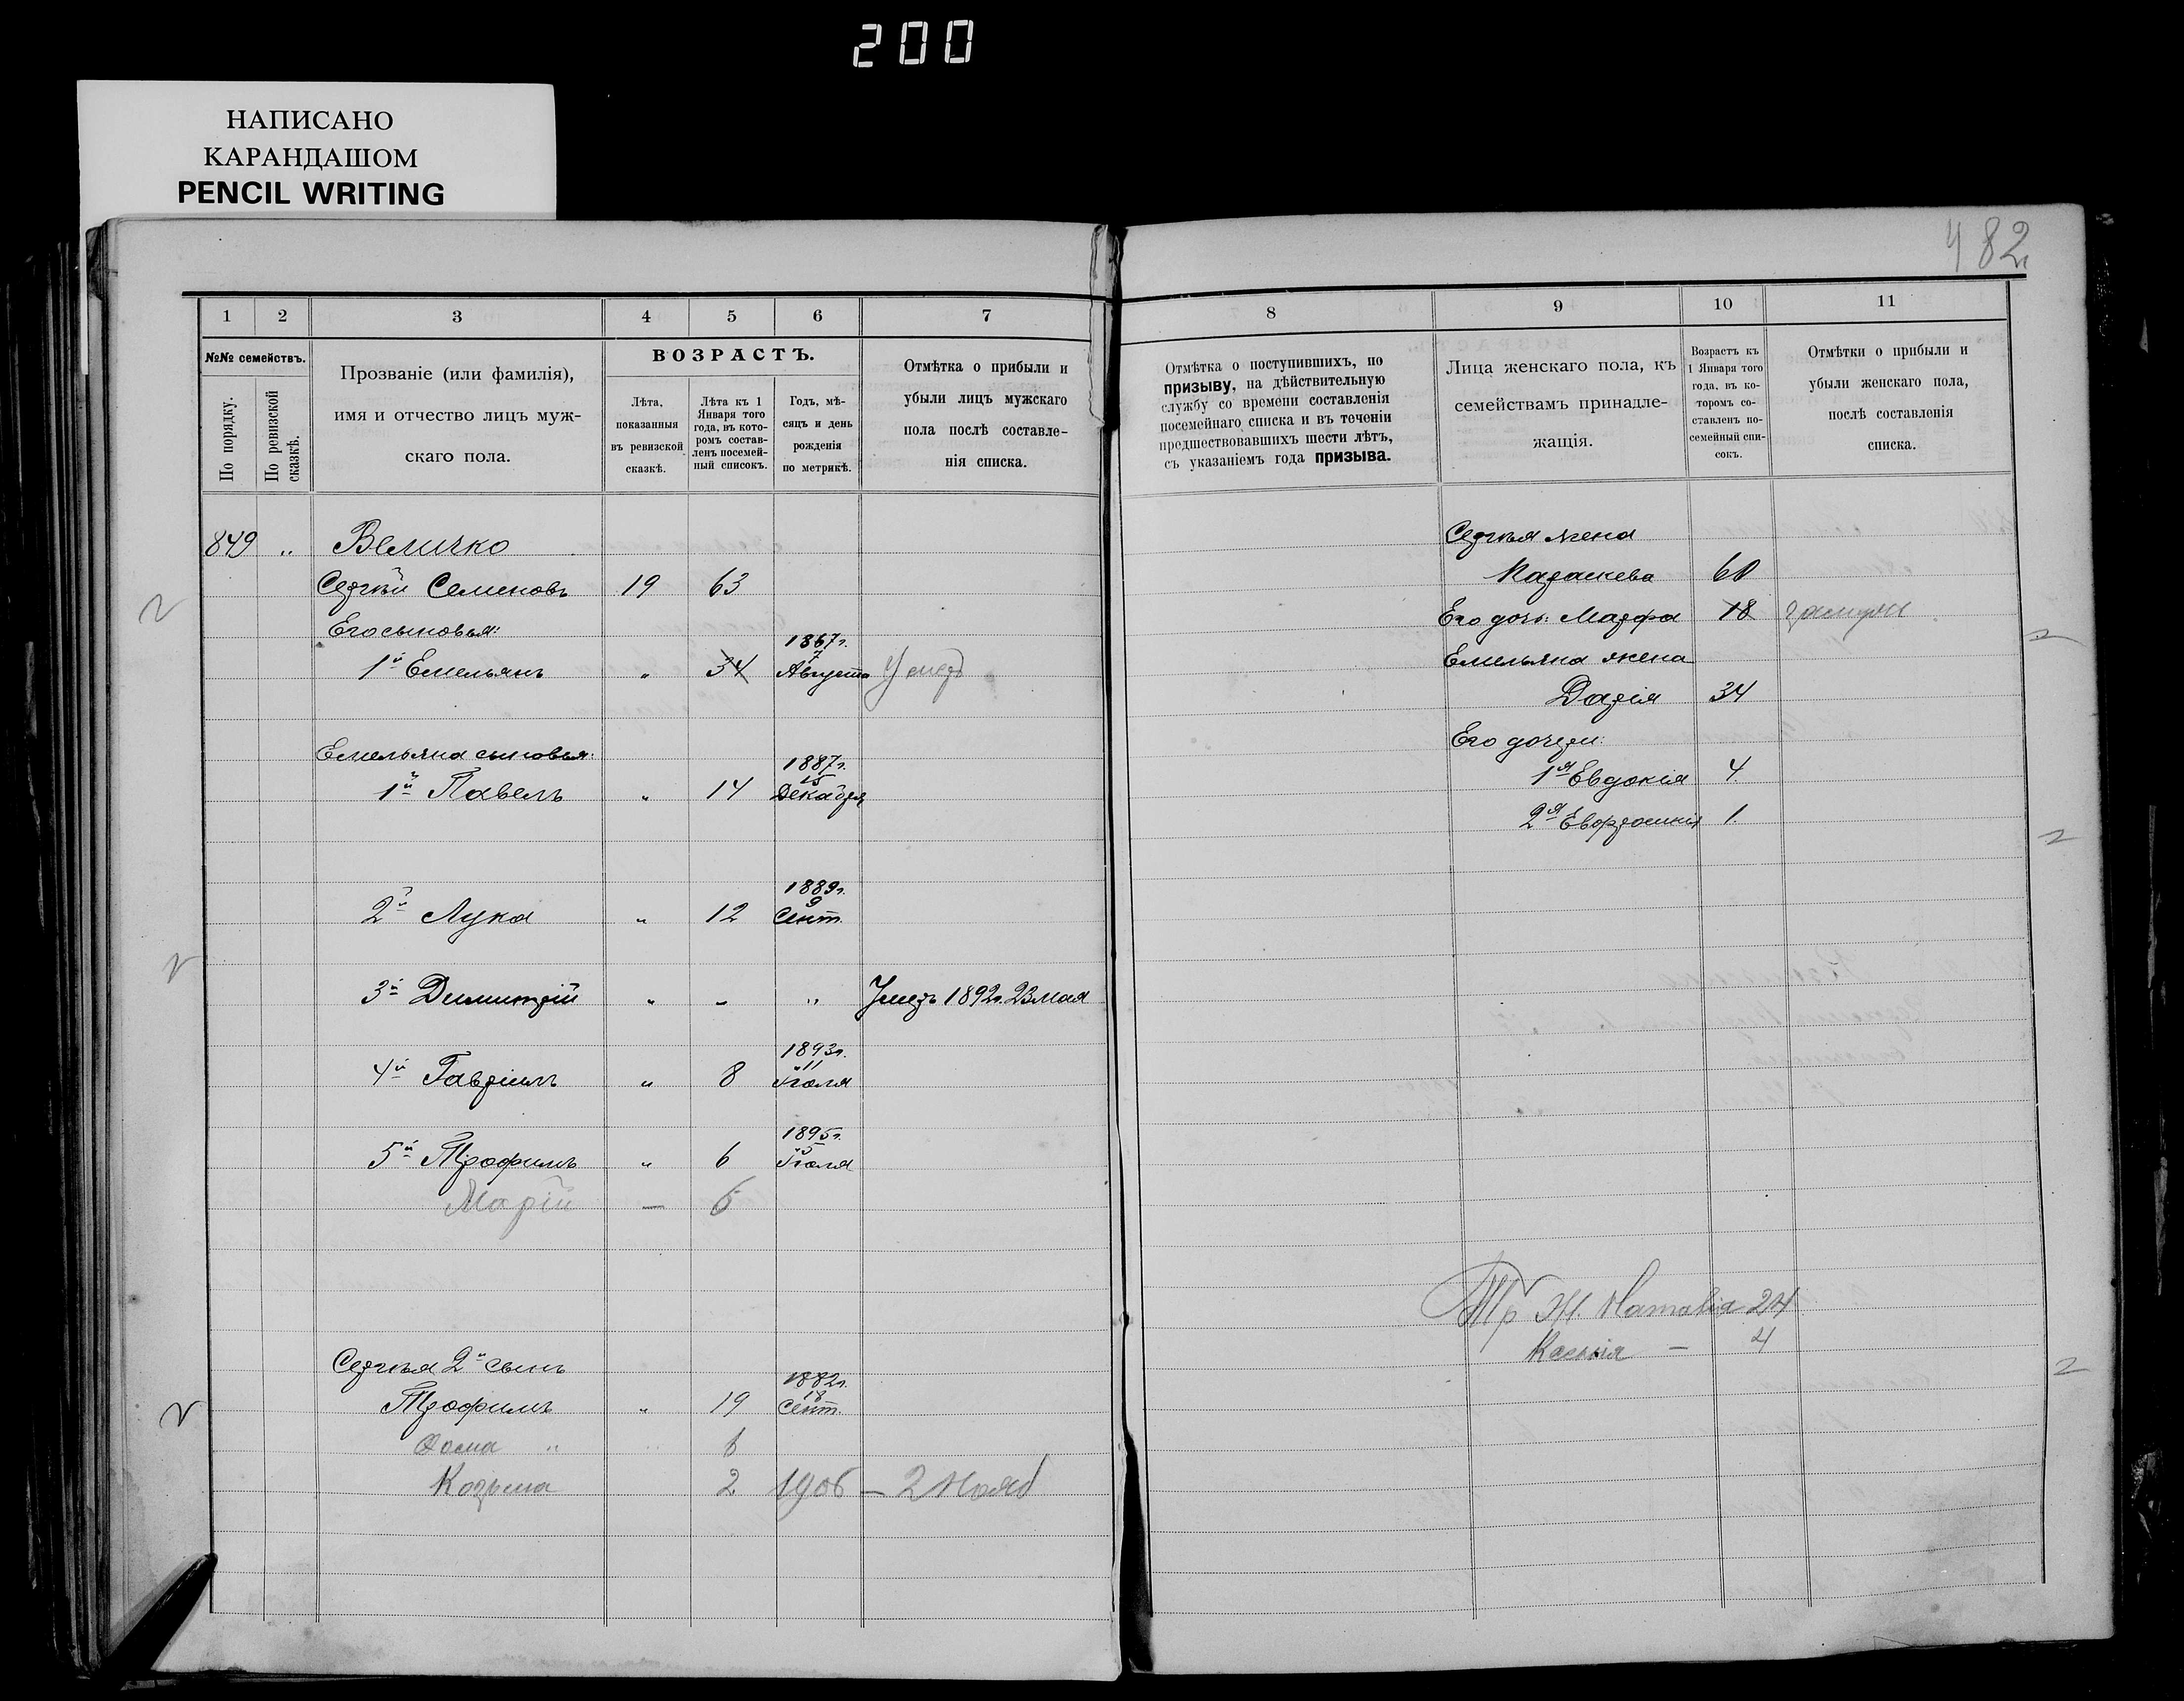 200
НАПИСАНО
КАРАНДАШОМ
PENCIL WRITING
482
1 2 3 4 5 6 7
№№ семействъ.
По порядку.
По ревизской сказкѣ.
Прозваніе (или фамилія),
имя и отчество лицъ муж-
скаго пола.
ВОЗРАСТЪ.
Лѣта,
показанныя
въ ревизской
сказкѣ.
Лѣта къ 1
Января того
года, въ кото-
ромъ состав-
ленъ посемей-
ный списокъ.
Годъ, мѣ-
сяцъ и день
рожденія
по метрикѣ.
Отмѣтка о прибыли и
убыли лицъ мужскаго
пола послѣ составле-
нія списка.
849 „ Величко
Сергѣй Семеновъ 19 63
Его сыновья:
1867г.
7
1й Емельянъ „ 34 Августа Умеръ
Емельяна сыновья:
1887г.
15
1й Павелъ „ 14 Декабря
1889г.
9
2й Лука „ 12 Сент.
3й Димитрій „ - „ Умеръ 1892г. 23 мая
1893г.
11
4й Гавріилъ „ 8 Іюля
1895г.
5
5й Трофимъ „ 6 Іюля
Марій — 6
Сергѣя 2й сынъ
1882г.
18
Трофимъ „ 19 Сент.
Фома „ 6
Козьма 2 1906 — 2 Нояб
8 9 10 11
Отмѣтка о поступившихъ, по
призыву, на дѣйствительную
службу со времени составленія
посемейнаго списка и въ теченіи
предшествовавшихъ шести лѣтъ,
съ указаніемъ года призыва.
Лица женскаго пола, къ
семействамъ принадле-
жащія.
Возрастъ къ
1 Января того
года, въ ко-
торомъ со-
ставленъ по-
семейный спи-
сокъ.
Отмѣтки о прибыли и
убыли женскаго пола,
послѣ составленія
списка.
Сергѣя жена
Параскева 60
Его дочь: Марфа 18 замуж
Емельяна жена
Дарія 34
Его дочери:
1я Евдокія 4.
2я Евфросинія 1.
Тр Ж. Наталія 24
Ксенія — 4